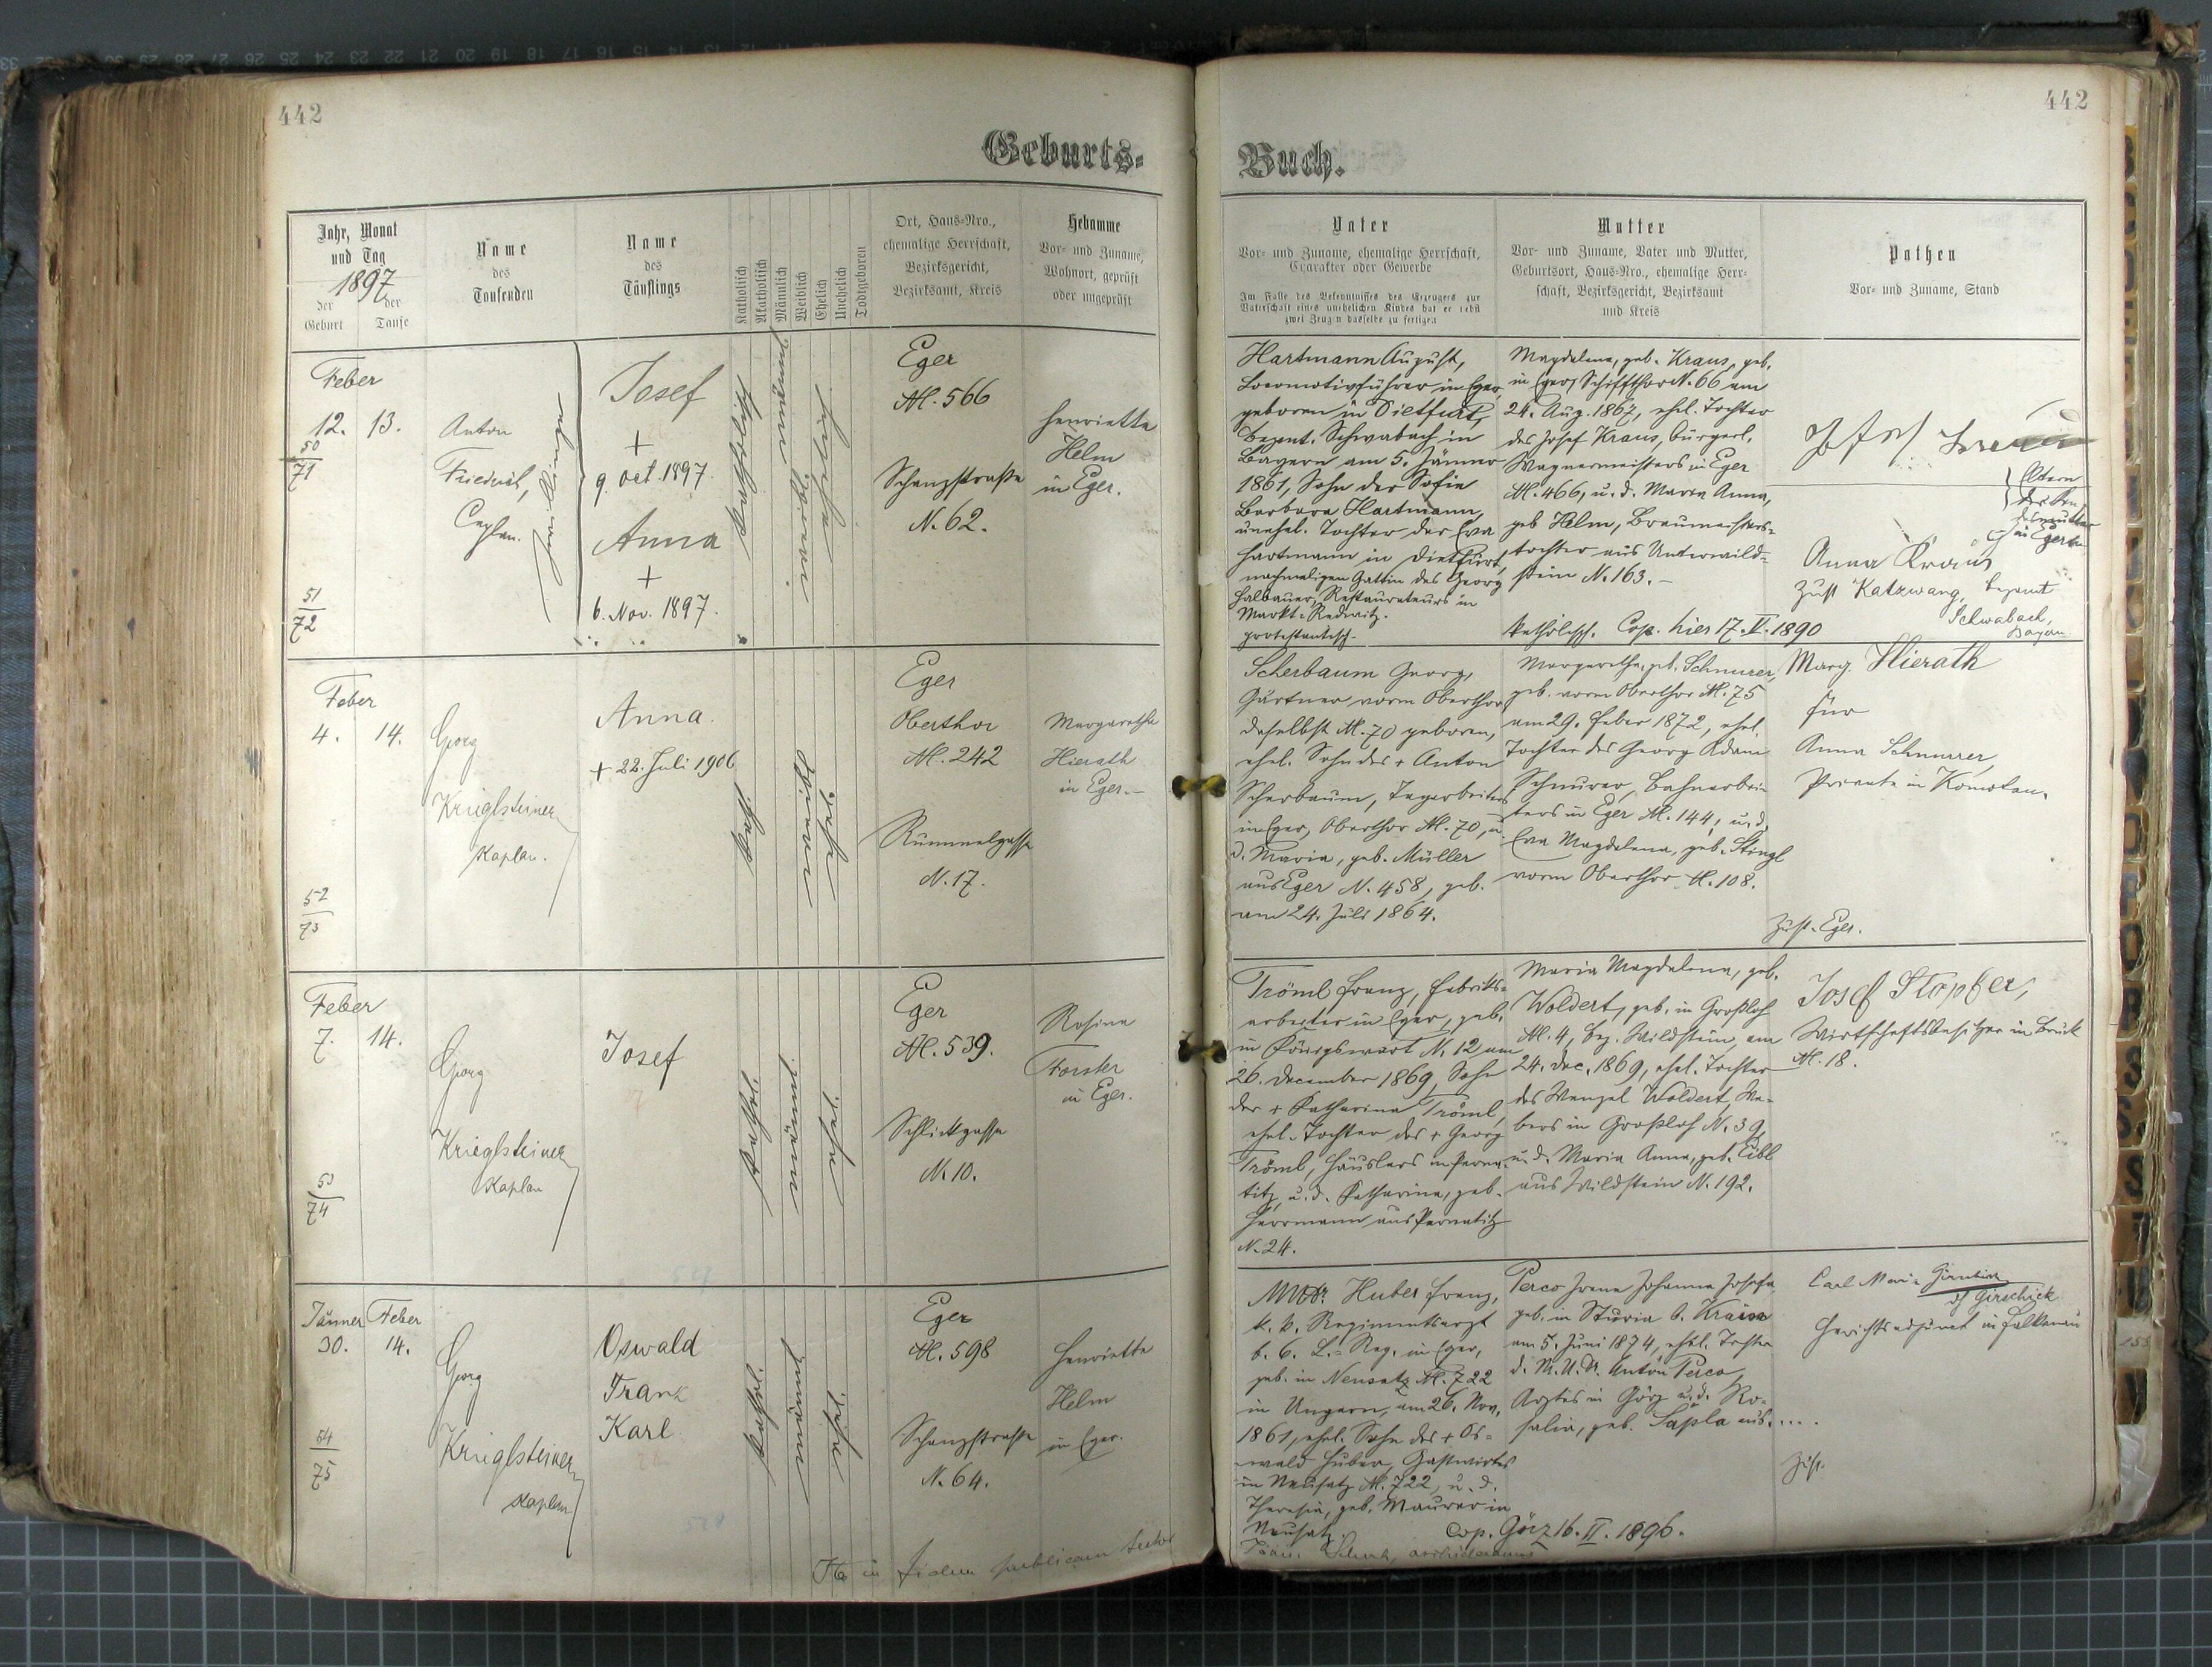 442
Geburts-
Jahr, Monat
und Tag
1897
der
Geburt
der
Taufe
Name
des
Taufenden
Name
des
Täuflings
Katholisch
Akatholisch
Männlich
Weiblich
Ehelich
Unehelich
Todtgeboren
Ort, Haus-Nro.,
ehemalige Herrschaft,
Bezirksgericht,
Bezirksamt, Kreis
Hebamme
Vor- und Zuname,
Wohnort, geprüft
oder ungeprüft
Feber
12. 13.
50
71
51
72
Anton
Friedrich,
Caplan.
Josef
+
9. Oct. 1897.
Anna
+
6. Nov. 1897.
Eger
N. 566
Schanzstraße
N. 62.
Henriette
Helm
in Eger.
Feber
4. 14.
52
73
Georg
Krieglsteiner
Kaplan.
Anna.
+ 22. Juli 1906
kath.
Eger
Oberthor
N. 242
Rummelgasse
N. 17.
Margaretha
Hierath
in Eger.
Feber
7. 14.
53
74
Georg
Krieglsteiner
Kaplan
Josef
kathol.
Eger
N. 539.
Schlickgasse
N. 10.
Rosina
Forster
in Eger.
Jänner Feber
30. 14.
54
75
Georg
Krieglsteiner
Kaplan
Oswald
Franz
Karl
kathol.
Eger
N. 598
Schanzstraße
N. 64.
Henriette
Helm
in Eger.
in fidem publicam
442
Buch.
Vater
Vor- und Zuname, ehemalige Herrschaft,
Charakter oder Gewerbe
Im Falle des Bekenntnisses des Erzeugers zur
Vaterschaft eines unehelichen Kindes hat er nebst
zwei Zeugen dasselbe zu fertigen
Mutter
Vor- und Zuname, Vater und Mutter,
Geburtsort, Haus-Nro., ehemalige Herr-
schaft, Bezirksgericht, Bezirksamt
und Kreis
Pathen
Vor- und Zuname, Stand
Hartmann August,
Locomotivführer in Eger,
geboren in Dietfurt,
Bezamt. Schwabach in
Bayern am 5. Jänner
1861, Sohn der Sofie
Barbara Hartmann,
unehel. Tochter der Eva
Hartmann in Dietfurt,
nachmaligen Gattin des Georg
Halbauer, Restaurateurs in
Markt-Redwitz.
protestantisch.
Magdalena, geb. Kraus, geb.
in Eger, Schiffthor N. 66 am
24. Aug. 1867, ehel. Tochter
des Josef Kraus, bürgerl.
Wagnermeisters in Eger
N. 466, u. d. Maria Anna,
geb Helm, Braumeisters-
tochter aus Unterwild-
stein N. 163.
katholisch. Cop. hier 17. V. 1890
Josef Kraus
Eltern
in Eger
Anna Kraus
Zust Katzwang, Bezamt
Schwabach,
Bayern
Scherbaum Georg,
Gärtner vorm Oberthor
daselbst N. 70 geboren,
ehel. Sohn des + Anton
Scherbaum, Tagarbeiters
in Eger, Oberthor N. 70, u.
d. Maria, geb. Müller
aus Eger N. 458, geb.
am 24. Juli 1864.
Margaretha, geb. Schnurer,
geb. vorm Oberthor N. 75
am 29. Feber 1872, ehel.
Tochter des Georg Adam
Schnurer, Bahnarbei-
ters in Eger N. 144, u. d.
Eva Magdalena, geb. Stingl
vorm Oberthor N. 108.
Marg. Hierath
für
Anna Schnurer,
Private in Komotau.
Zust. Eger.
Tröml Franz, Fabriks-
arbeiter in Eger, geb.
in Königswart N. 12 am
26. December 1869, Sohn
der + Katharina Tröml,
ehel. Tochter des + Georg
Tröml, Häuslers in Perna-
titz, u. d. Katharina, geb.
Herrmann aus Pernatitz
N. 24.
Maria Magdalena, geb.
Woldert, geb. in Großloh
N. 4, Bez. Wildstein, am
24. Dec. 1869, ehel. Tochter
des Wenzel Woldert, We-
bers in Großloh N. 39,
u. d. Maria Anna, geb. Eibl
aus Wildstein N. 192.
Josef Stöpfer,
Wirtschaftsbesitzer in Bruck
N. 18.
MUDr. Huber Franz,
k. k. Regimentsarzt
b. 6. L. Reg. in Eger,
geb. in Neusatz N. 722
in Ungarn, am 26. Nov.
1861, ehel. Sohn des + Os-
wald Huber, Gastwirtes
in Neusatz N. 722, u. d.
Theresia, geb. Maurer in
Neusatz.
Perco Irene Johanna Josefa,
geb. in Sturia b. Kraina
am 5. Juni 1874, ehel. Tochter
d. M. U. Dr. Anton Perco,
Arztes in Görz u. d. Ro-
salia, geb. Sapla aus....
Carl Maria
Girschick
Gerichtsadjunct in Falkenau
Zust.
Cop. Görz 16. II. 1896.